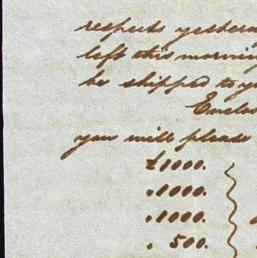 respects yesterday
left this morning
be shipped to yo
Enclos
you will please
£1000.
"1000.
"1000.
" 500.